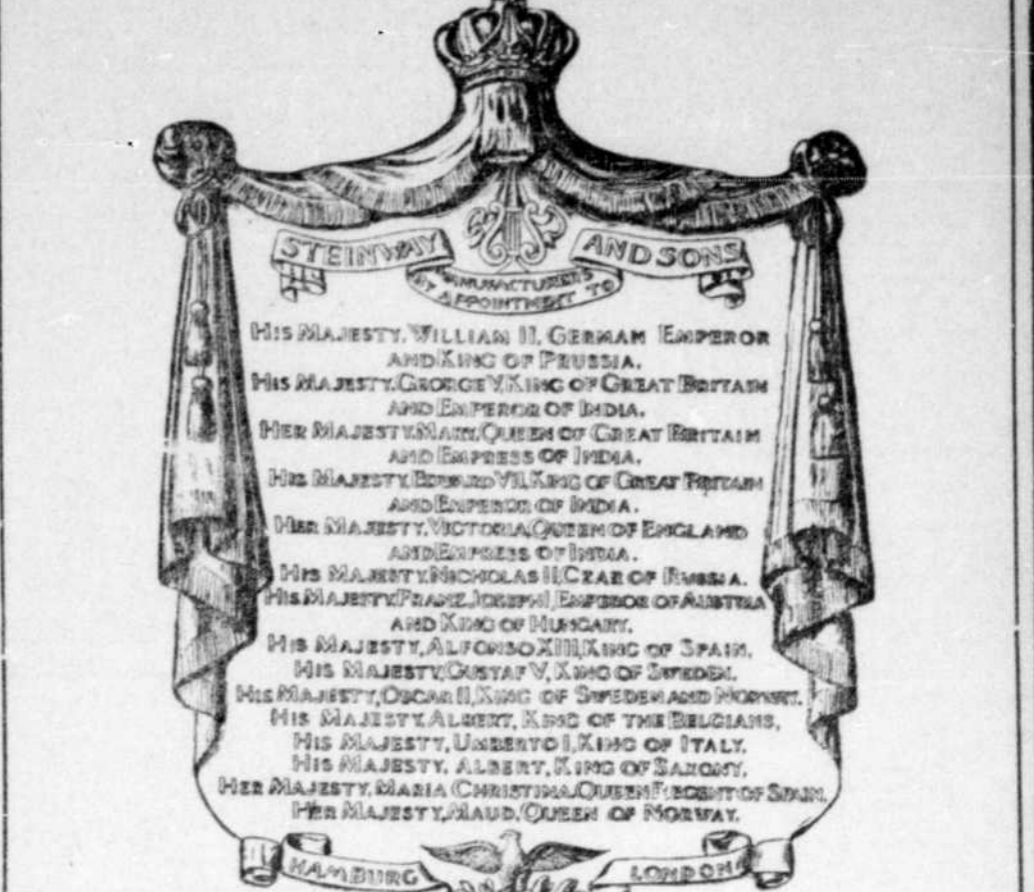 STEINWAY AND SONS
MANUFACTURERS
BY APPOINTMENT TO
HIS MAJESTY, WILLIAM II, GERMAN EMPEROR
AND KING OF PRUSSIA.
HIS MAJESTY, GEORGE V, KING OF GREAT BRITAIN
AND EMPEROR OF INDIA.
HER MAJESTY, MARY, QUEEN OF GREAT BRITAIN
AND EMPRESS OF INDIA.
HIS MAJESTY, EDWARD VII, KING OF GREAT BRITAIN
AND EMPEROR OF INDIA.
HER MAJESTY, VICTORIA, QUEEN OF ENGLAND
AND EMPRESS OF INDIA.
HIS MAJESTY, NICHOLAS II, CZAR OF RUSSIA.
HIS MAJESTY, FRANZ JOSEPH I, EMPEROR OF AUSTRIA
AND KING OF HUNGARY.
HIS MAJESTY, ALFONSO XIII, KING OF SPAIN,
HIS MAJESTY, GUSTAF V, KING OF SWEDEN.
HIS MAJESTY, OSCAR II, KING OF SWEDEN AND NORWAY.
HIS MAJESTY, ALBERT, KING OF THE BELGIANS,
HIS MAJESTY, UMBERTO I, KING OF ITALY.
HIS MAJESTY, ALBERT, KING OF SAXONY.
HER MAJESTY, MARIA CHRISTINA, QUEEN REGENT OF SPAIN.
HER MAJESTY, MAUD, QUEEN OF NORWAY.
HAMBURG LONDON